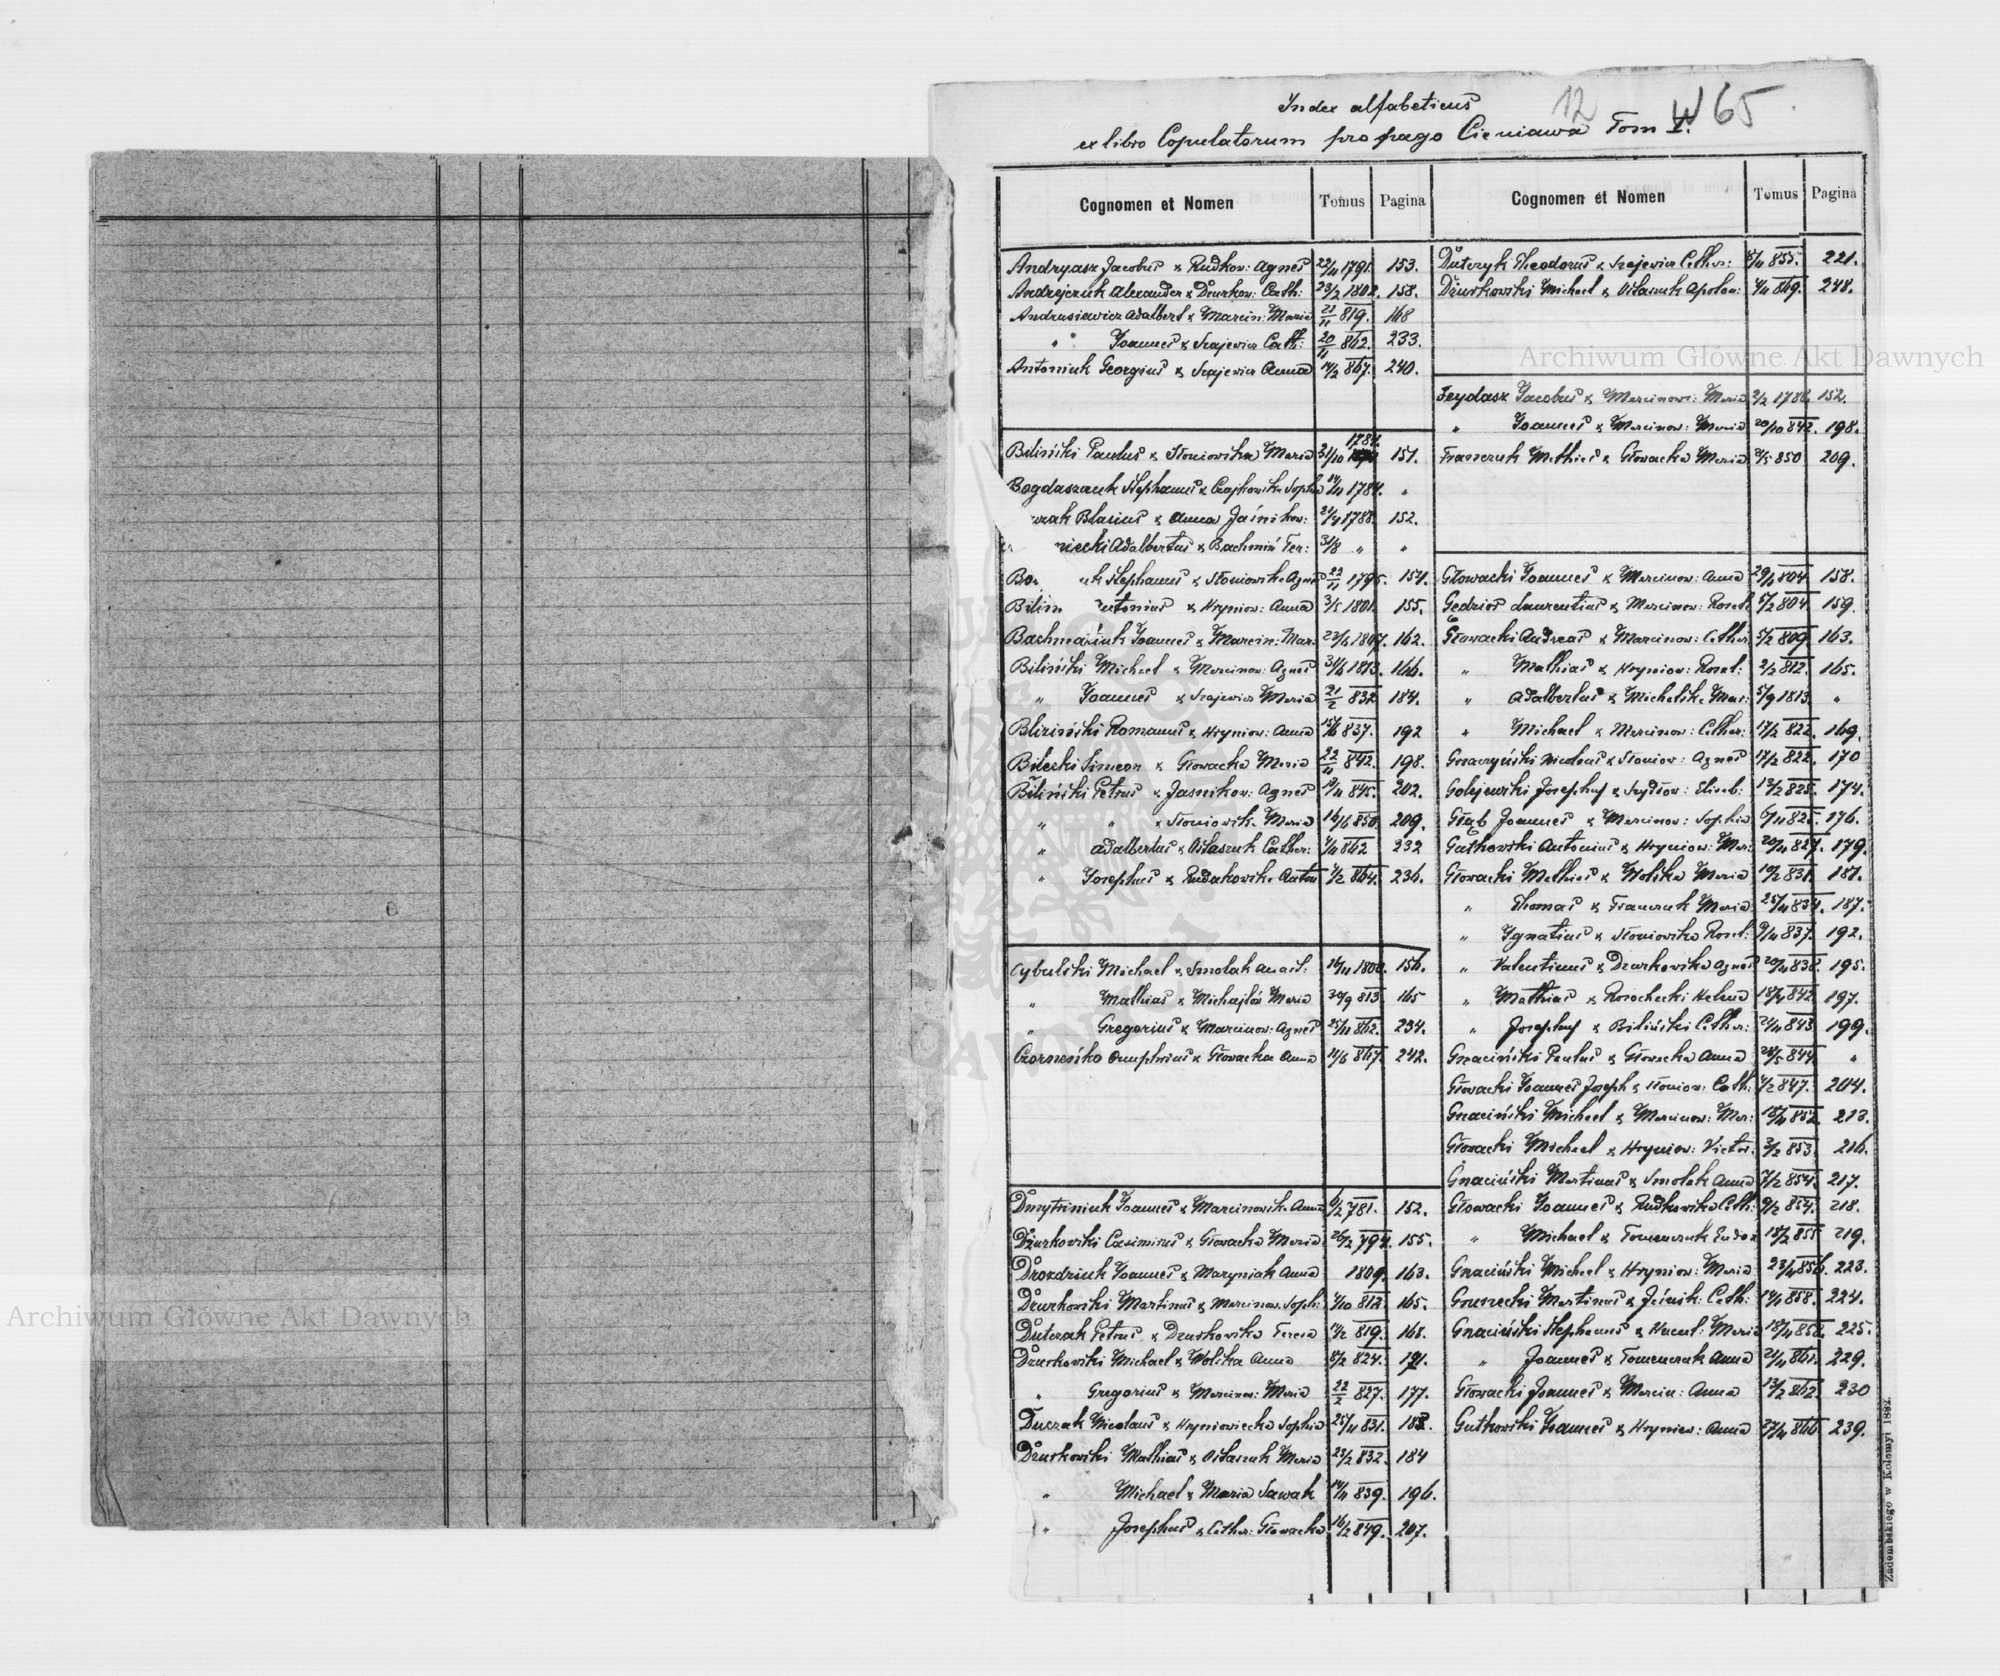 Index alfabeticus 12 W 65
ex libro Copulatorum pro pago Cieniawa Tom I.
Cognomen et Nomen Tomus Pagina
Andryasz Jacobus & Rudkow: Agnes 22/11 1791. 153.
Andrejczuk Alexander & Dzurkow: Cath: 23/2 1802. 158.
Andrusiewicz Adalbert & Marcin: Maria 21/11 819. 168
" Joannes & Szajewicz Cath: 20/11 862. 233.
Antoniuk Georgius & Szajewicz Anna 14/2 867. 240.
Biliński Paulus & Słoniowska Maria 31/10 1781. 151.
Bogdaszczuk Stephanus & Czajkowska Sophia 14/11 1784. "
Blasius & Anna Jaśnikow: 21/4 1788. 152.
niecki Adalbertus & Bachmiń Ter: 31/8 " "
Stephanus & Słoniowska Agnes 22/11 1795. 154.
Bilin Antonius & Hryniow: Anna 3/5 1801. 155.
Bachmańiuk Joannes & Marcin: Mar: 22/6 1807. 162.
Biliński Michael & Marcinow: Agnes 31/6 1813. 166.
" Joannes & Szajewicz Maria 21/2 832 184.
Bliziński Romanus & Hryniow: Anna 15/6 837. 192
Bilecki Simeon & Głowacka Maria 22/11 842. 198.
Biliński Petrus & Jasnikow: Agnes 18/11 845. 202.
" " & Słoniowsk: Maria 16/6 850. 209.
" Adalbertus & Ostaszuk Cather: 4/11 862 232
" Josephus & Rudakowska Anton 1/2 864. 236.
Cybulski Michael & Smolak Anast: 16/11 1800. 156.
" Mathias & Michajlów Maria 30/9 813. 165
" Gregorius & Marcinow: Agnes 25/11 862. 234.
Czorneńko Onuphrius & Głowacka Anna 11/6 867. 242.
Dmytriniuk Joannes & Marcinowska Anna 6/2 781. 152.
Dżurkowski Casimirus & Głowacka Maria 26/2 794. 155.
Drozdziuk Joannes & Maryniak Anna 1809. 163.
Dzurkowski Martinus & Marcinow: Soph: 4/10 812 165.
Dutczak Petrus & Dzurkowska Teresa 14/2 819. 168.
Dzurkowski Michael & Wolska Anna 8/2 824. 171.
" Gregorius & Marcinow: Maria 22/2 827. 177.
Duczak Nicolaus & Hryniowiecka Sophia 25/11 831. 183.
Dzurkowski Mathias & Ostaszuk Maria 23/2 832. 184
" Michael & Maria Sawak 14/11 839. 196.
" Josephus & Cather: Głowacka 16/2 849. 207.
Cognomen et Nomen Tomus Pagina
Dutczyk Theodorus & Szajewicz Cather: 8/11 855. 221.
Dżurkowski Michael & Ostaszuk Apolon: 4/11 869. 248.
Feydasz Jacobus & Marcinow: Maria 3/2 1786. 152.
" Joannes & Marcinow: Maria 20/10 842. 198.
Franczuk Mathias & Głowacka Maria 2/5 850 209.
Głowacki Joannes & Marcinow: Anna 29/1 804. 158.
Gedzios Laurentius & Marcinow: Rosal: 5/2 804. 159.
Głowacki Andreas & Marcinow: Cather 5/2 809. 163.
" Mathias & Hryniow: Rosal: 2/2 812. 165.
" Adalbertus & Michelska Mar: 5/9 1813. "
" Michael & Marcinow: Cather: 17/2 822. 169.
Gnaczyński Nicolaus & Słoniow: Agnes 17/2 822. 170
Golejewski Josephus & Szydłow: Elisab: 13/2 825. 174.
Głąb Joannes & Marcinow: Sophia 6/11 825. 176.
Gutkowski Antonius & Hryniow: Mar: 20/11 827. 179.
Głowacki Mathias & Wolska Maria 10/2 831. 181.
" Thomas & Franczuk Maria 25/11 834. 187.
" Ignatius & Słoniowska Rosal: 9/11 837. 192.
" Valentinus & Dzurkowska Agnes 20/11 838. 195.
" Mathias & Rosochecki Helena 18/4 842. 197.
" Josephus & Biliński Cather: 21/11 843 199.
Gnaciński Paulus & Głowacka Anna 28/5 844 "
Głowacki Joannes Joseph & Słoniow: Cath: 7/2 847. 204.
Gnaciński Michael & Marcinow: Mar: 18/11 852 213.
Głowacki Michael & Hryniow: Victor: 3/2 853. 216.
Gnaciński Martinus & Smolak Anna 7/2 854. 217.
Głowacki Joannes & Rudkowska Cath: 9/2 854. 218.
" Michael & Tomenczuk Eudox 18/2 855 219.
Gnaciński Michael & Hryniow: Maria 23/11 856. 223.
Gruszecki Martinus & Jaśnik: Cath: 14/11 858. 224.
Gnaciński Stephanus & Maria 18/11 858. 225.
" Joannes & Tomenczuk Anna 21/11 861. 229.
Głowacki Joannes & Marcin: Anna 13/2 862. 230
Gutkowski Joannes & Hryniew: Anna 27/11 866 239.
Zadembskiego w Kołomyi 1882.
Archiwum Główne Akt Dawnych
Archiwum Główne Akt Dawnych